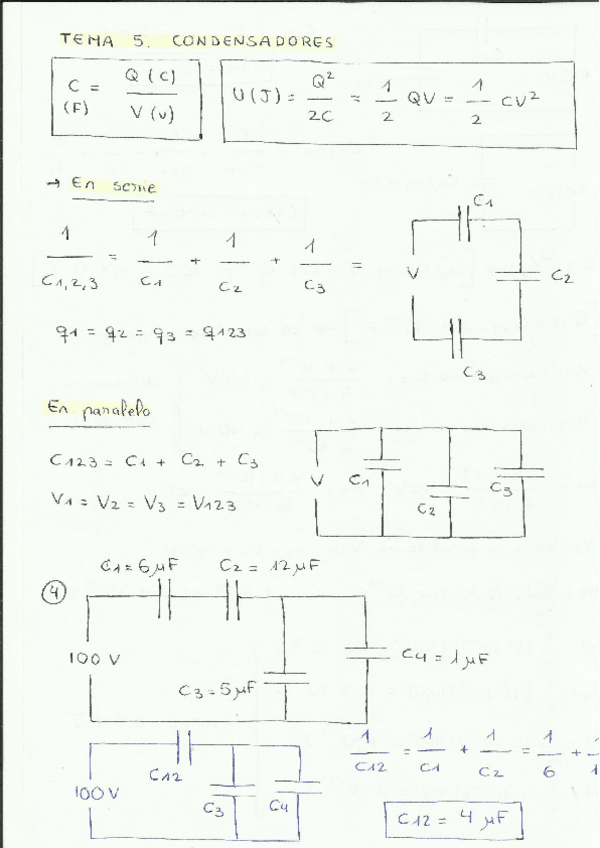 TEMA 5. CONDENSADORES
C (F) = Q (C) / V (v)
U (J) = Q² / 2C = 1/2 QV = 1/2 CV²
→ En serie
1/C1,2,3 = 1/C1 + 1/C2 + 1/C3 =
q1 = q2 = q3 = q123
C1
V
C2
C3
En paralelo
C123 = C1 + C2 + C3
V1 = V2 = V3 = V123
V
C1
C2
C3
4
C1 = 6 μF C2 = 12 μF
100 V
C3 = 5 μF
C4 = 1 μF
100 V
C12
C3
C4
1/C12 = 1/C1 + 1/C2 = 1/6 +
C12 = 4 μF